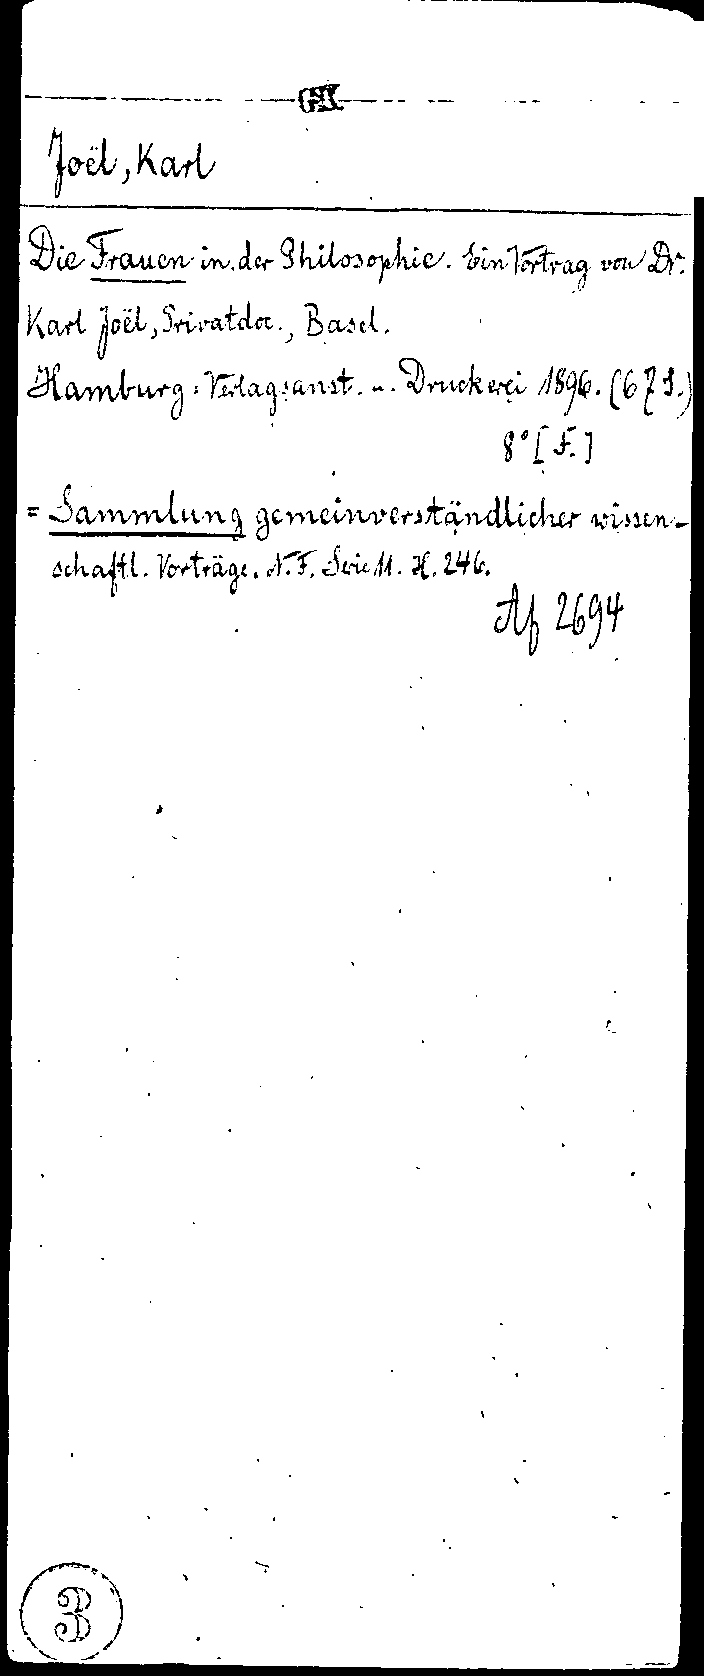 Joël, Karl
Die Frauen in der Philosophie. Ein Vortrag von Dr.
Karl Joël, Privatdoc., Basel.
Hamburg: Verlagsanst. u. Druckerei 1896. (67 S.)
8° [F.]
= Sammlung gemeinverständlicher wissen-
schaftl. Vorträge. N. F. Serie 11. H. 246.
Af 2694
3